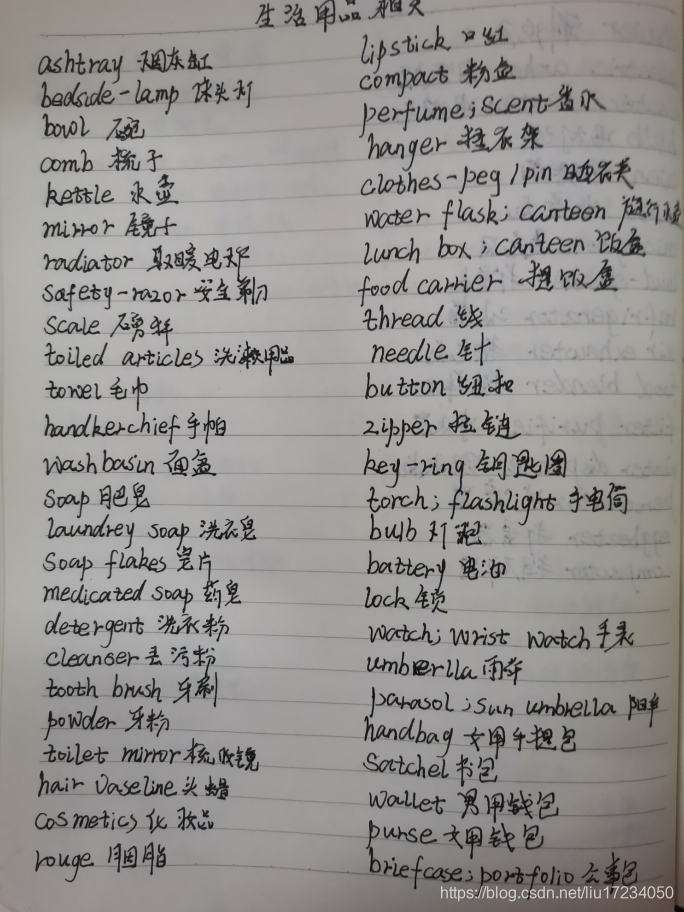 生活用品相关
ashtray 烟灰缸
bedside-lamp 床头灯
bowl 碗
comb 梳子
kettle 水壶
mirror 镜子
radiator 取暖电炉
safety-razor 安全剃刀
scale 磅秤
toiled articles 洗漱用品
towel 毛巾
handkerchief 手帕
wash basin 面盆
soap 肥皂
laundrey soap 洗衣皂
soap flakes 皂片
medicated soap 药皂
detergent 洗衣粉
cleanser 去污粉
tooth brush 牙刷
powder 牙粉
toilet mirror 梳妆镜
hair vaseline 头蜡
cosmetics 化妆品
rouge 胭脂
lipstick 口红
compact 粉盒
perfume; scent 香水
hanger 挂衣架
clothes-peg / pin 晒衣夹
water flask; canteen 旅行水壶
lunch box; canteen 饭盒
food carrier 提饭盒
thread 线
needle 针
button 纽扣
zipper 拉链
key-ring 钥匙圈
torch; flashlight 手电筒
bulb 灯泡
battery 电池
lock 锁
watch; wrist watch 手表
umbrerlla 雨伞
parasol; sun umbrella 阳伞
handbag 女用手提包
satchel 书包
wallet 男用钱包
purse 女用钱包
briefcase; portfolio 公事包
https://blog.csdn.net/liu17234050